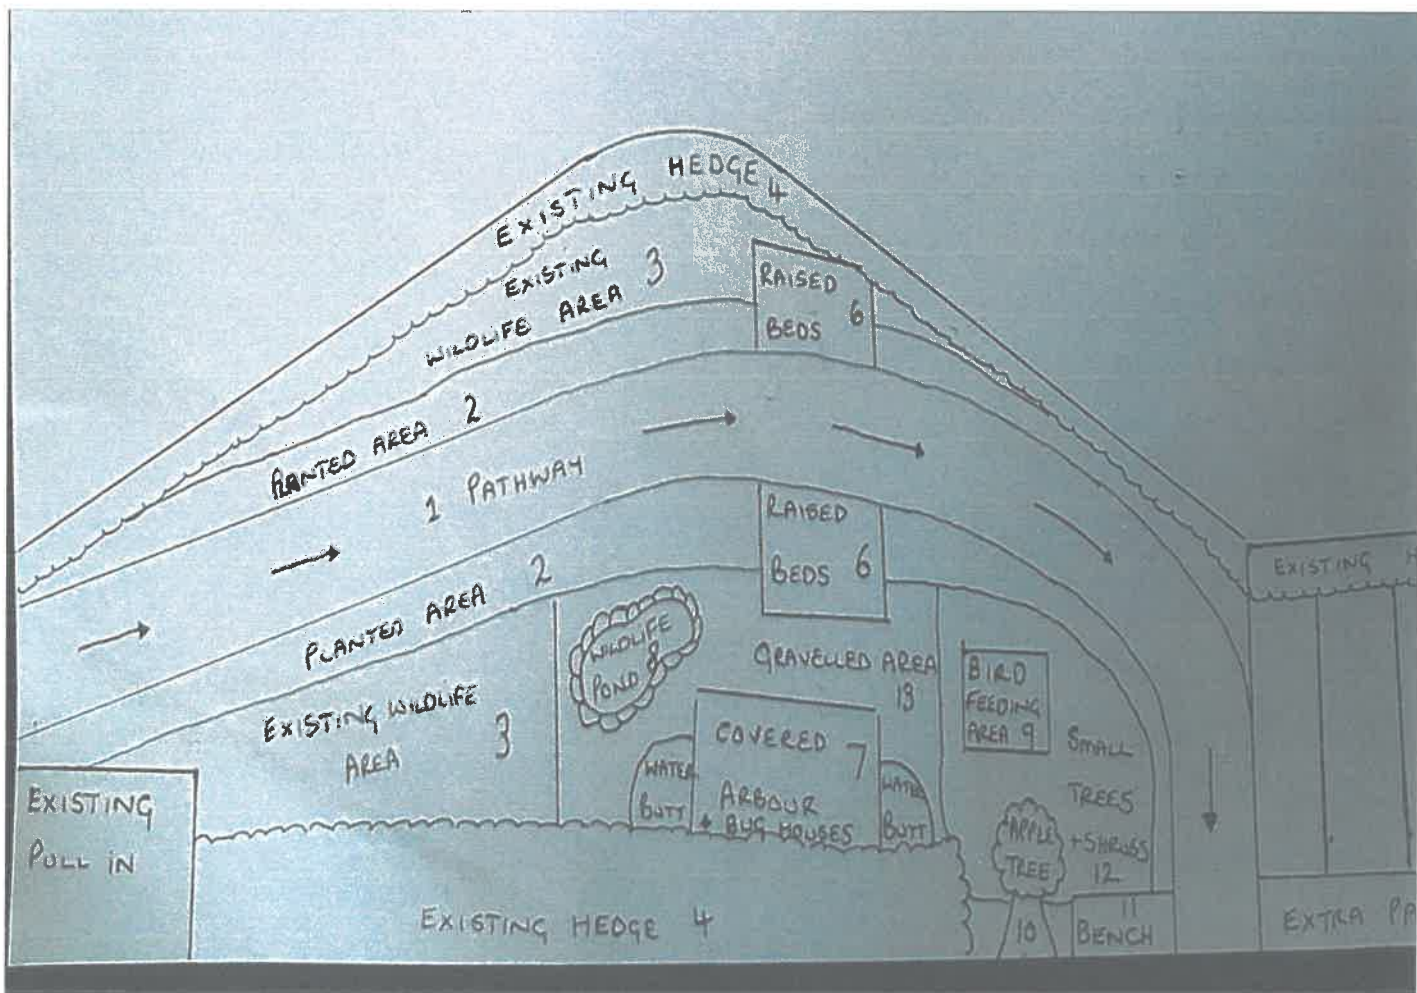 EXISTING HEDGE 4
EXISTING
WILDLIFE AREA 3
RAISED
BEDS 6
PLANTED AREA 2
1 PATHWAY
RAISED
BEDS 6
PLANTED AREA 2
EXISTING WILDLIFE
AREA 3
WILDLIFE
POND 8
GRAVELLED AREA
13
BIRD
FEEDING
AREA 9
COVERED 7
ARBOUR
+ BUG HOUSES
WATER
BUTT
WATER
BUTT
SMALL
TREES
+ SHRUBS
12
APPLE
TREE
10
11
BENCH
EXISTING
PULL IN
EXISTING HEDGE 4
EXISTING H
EXTRA PA